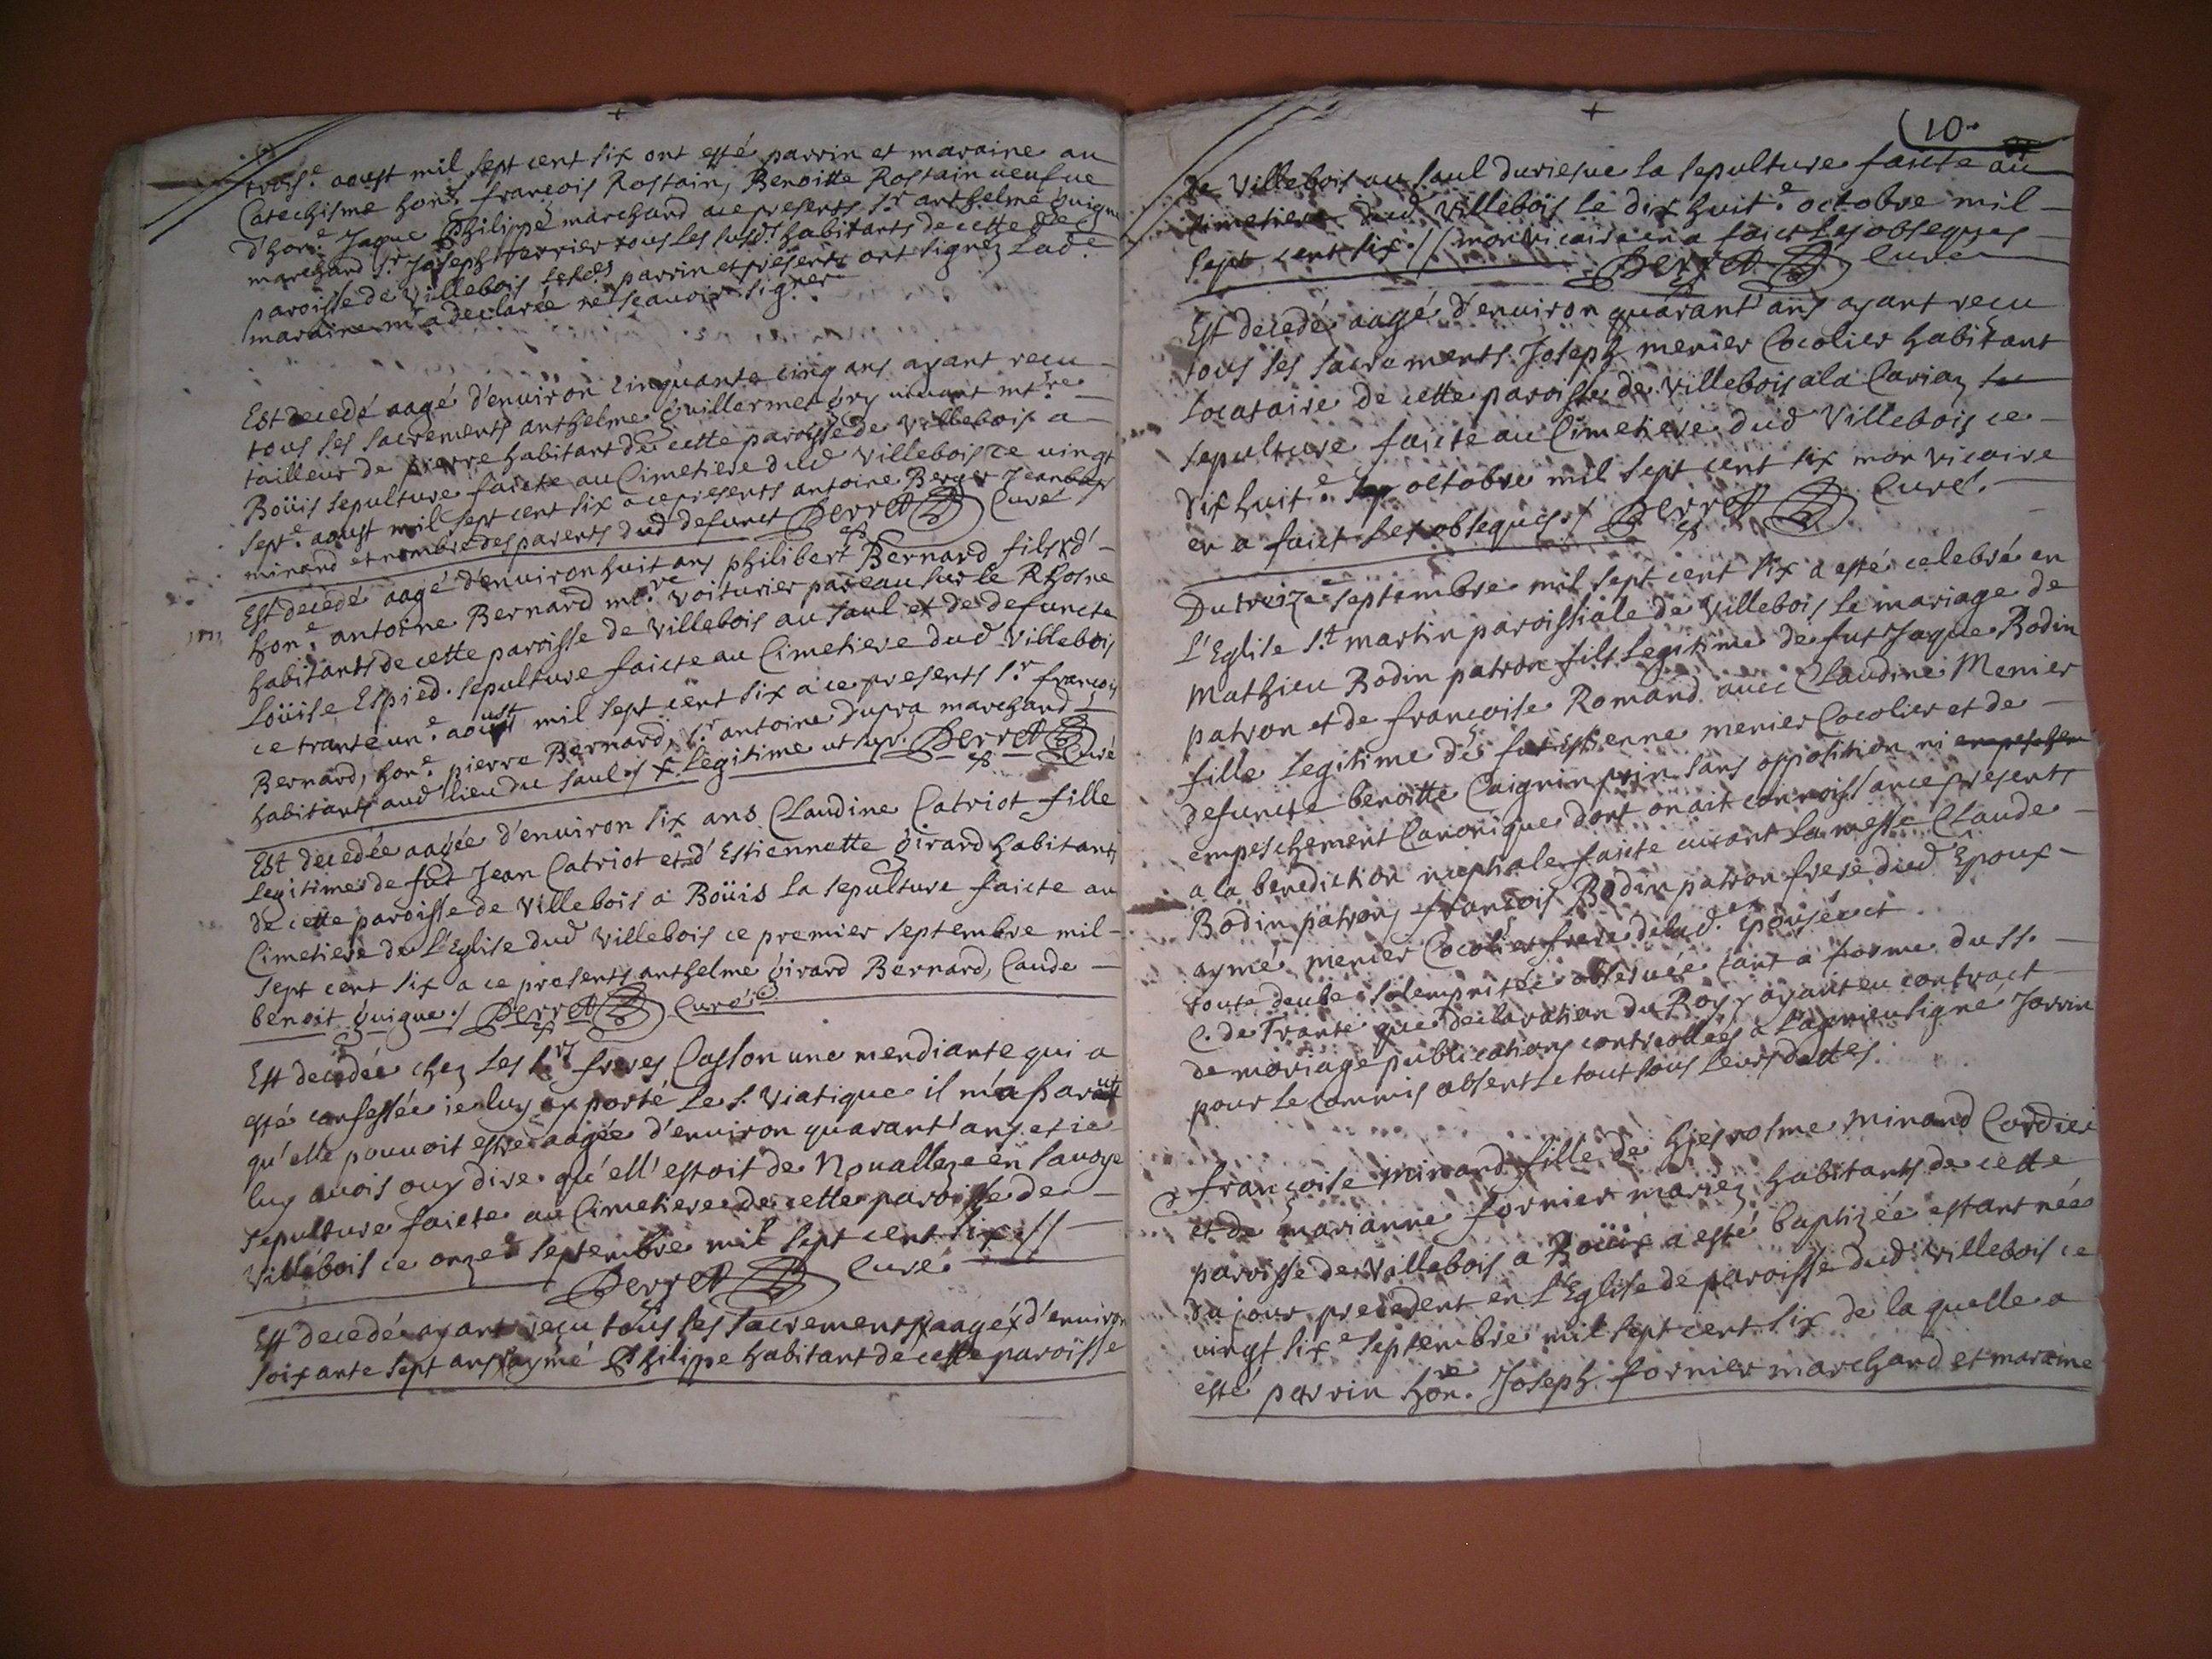 trois.e aoust mil sept cent six ont esté parrin et maraine au
Catechisme hon.e françois Rostain, Benoitte Rostain veufue
d'hon.e Jaque Philippe marchand a ce presents s.r anthelme Guigue
marchand s.r Joseph terrier tous les susd.s habitants de cette
paroisse de Villebois parrin et presents ont signez Lad.e
maraine m'a declarée ne scauoir signer
Est decedé aagé d'enuiron cinquante cinq ans ayant recu
tous ses sacrements anthelme Guillermet Gry viuant m.re
tailleur de pierre habitant de cette paroisse de Villebois a
Boüis sepulture faicte au Cimetiere dud Villebois ce uingt
sept.e aoust mil sept cent six a ce presents antoine Berger Jean
minand et nombre des parents dud defunct Perret Curé
Est decedé aagé d'enuiron huit ans philibert Bernard fils x d'
hon.e antoine Bernard m.re voiturier par eau sur le Rhosne
habitants de cette paroisse de Villebois au Saul et de defuncte
Loüise Espied. sepulture faicte au Cimetiere dud Villebois
ce trante un.e aoust mil sept cent six a ce presents s.r françois
Bernard, hon.e pierre Bernard, s.r antoine Dupra marchand
habitants aud lieu du Saul ./ x Legitime ut sup. Perret Curé
Est decedée aagée d'enuiron six ans Claudine Catriot fille
Legitime de fut Jean Catriot et d'Estiennette Girard habitants
de cette paroisse de Villebois a Boüis la sepulture faicte au
Cimetiere de L'Eglise dud Villebois ce premier septembre mil
sept cent six a ce presents anthelme Girard Bernard, Caude
benoit Guigue ./ Perret Curé
Est decedée chez les s.rs freres Caston une mendiante qui a
esté confessée ie luy ay porté Le s. Viatique il m'a parut
qu'elle pouuoit estre aagée d'enuiron quarant' ans, et ie
luy auois ouy dire qu'ell' estoit de Noualleze en Sauoye
sepulture faicte au Cimetiere de cette paroisse de
Villebois ce onze.e septembre mil sept cent six ://
Perret Curé
Est decedé ayant reçu tous ses sacrements aagé d'enuiron
soixante sept ans aymé Philippe habitant de cette paroisse
10.
de Villebois au Saul la sepulture faicte au
cimetiere dud Villebois Le dix huit.e octobre mil
sept cent six ./ mon vicaire en a faict Les obseques
Perret Curé
Est decedé aagé d'enuiron quarant' ans ayant recu
tous ses sacrements Joseph menier Cocolier habitant
Locataire de cette paroisse de Villebois a la Cariaz
sepulture faicte au Cimetiere dud Villebois ce
dix huit.e octobre mil sept cent six mon vicaire
en a faict Les obseques ./ Perret Curé.
Du treize septembre mil sept cent six a esté celebré en
L'Eglise S.t martin paroissiale de Villebois Le mariage de
Mathieu Bodin patron fils Legitime de fut Jaque Bodin
patron et de françoise Romand auec Claudine Menier
fille Legitime de fut Estienne menier Cocolier et de
defuncte benoitte Caignin sans opposition ni
empeschement Canonique dont on ait connoissance presents
a la benediction nuptiale faicte auant la messe Claude
Bodin patron, françois Bodin patron frere dud Epoux
aymé menier Cocolier frere de lad. Epousée et
toute deube solempnitée obseruée tant a forme du ss.
C. de Trante que declaration du Roy, y ayant eu contract
de mariage publications controollées a Lagnieu signe Jarrin
pour le Commis absent Le tout sous leurs dattes
françoise minand fille de hyerosme minand Cordier
et de marianne fornier mariez habitants de cette
paroisse de Villebois a Boüis a esté baptizée estant née
du jour precedent en L'Eglise de paroisse dud Villebois ce
uingt six.e septembre mil sept cent six de la quelle a
esté parrin hon.re Joseph fornier marchand et maraine